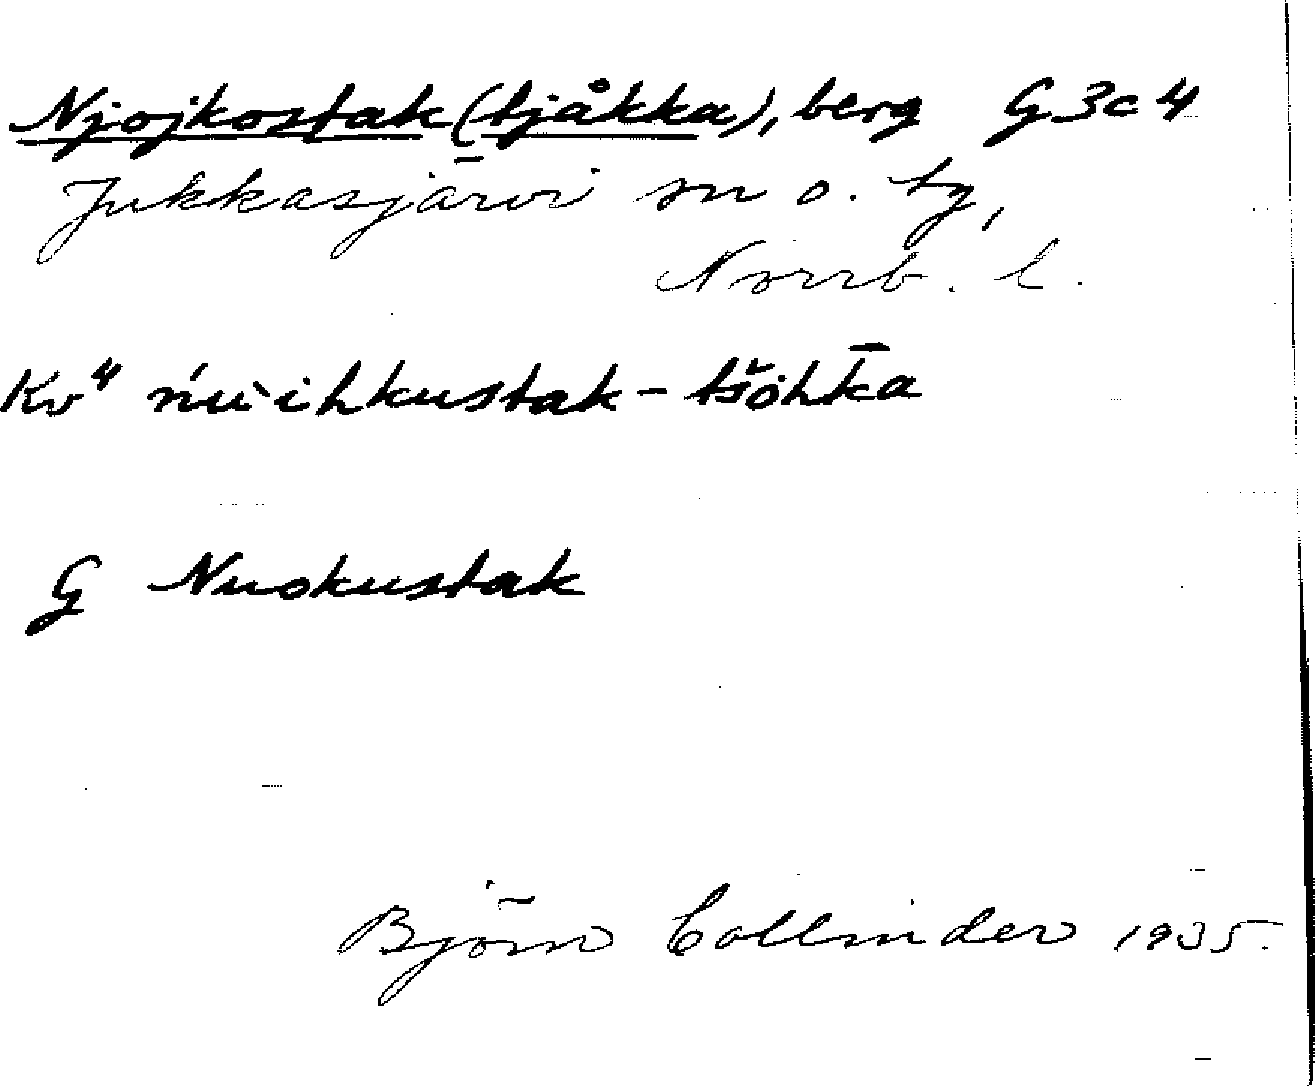 Njojkostak (tjåkka), berg G 3c 4
Jukkasjärvi sn o. tg,
Norrb. l.
Kv" ńu`ihkustak - tšŏhk̄a
G Nuokustak
Björn Collinder 1935.